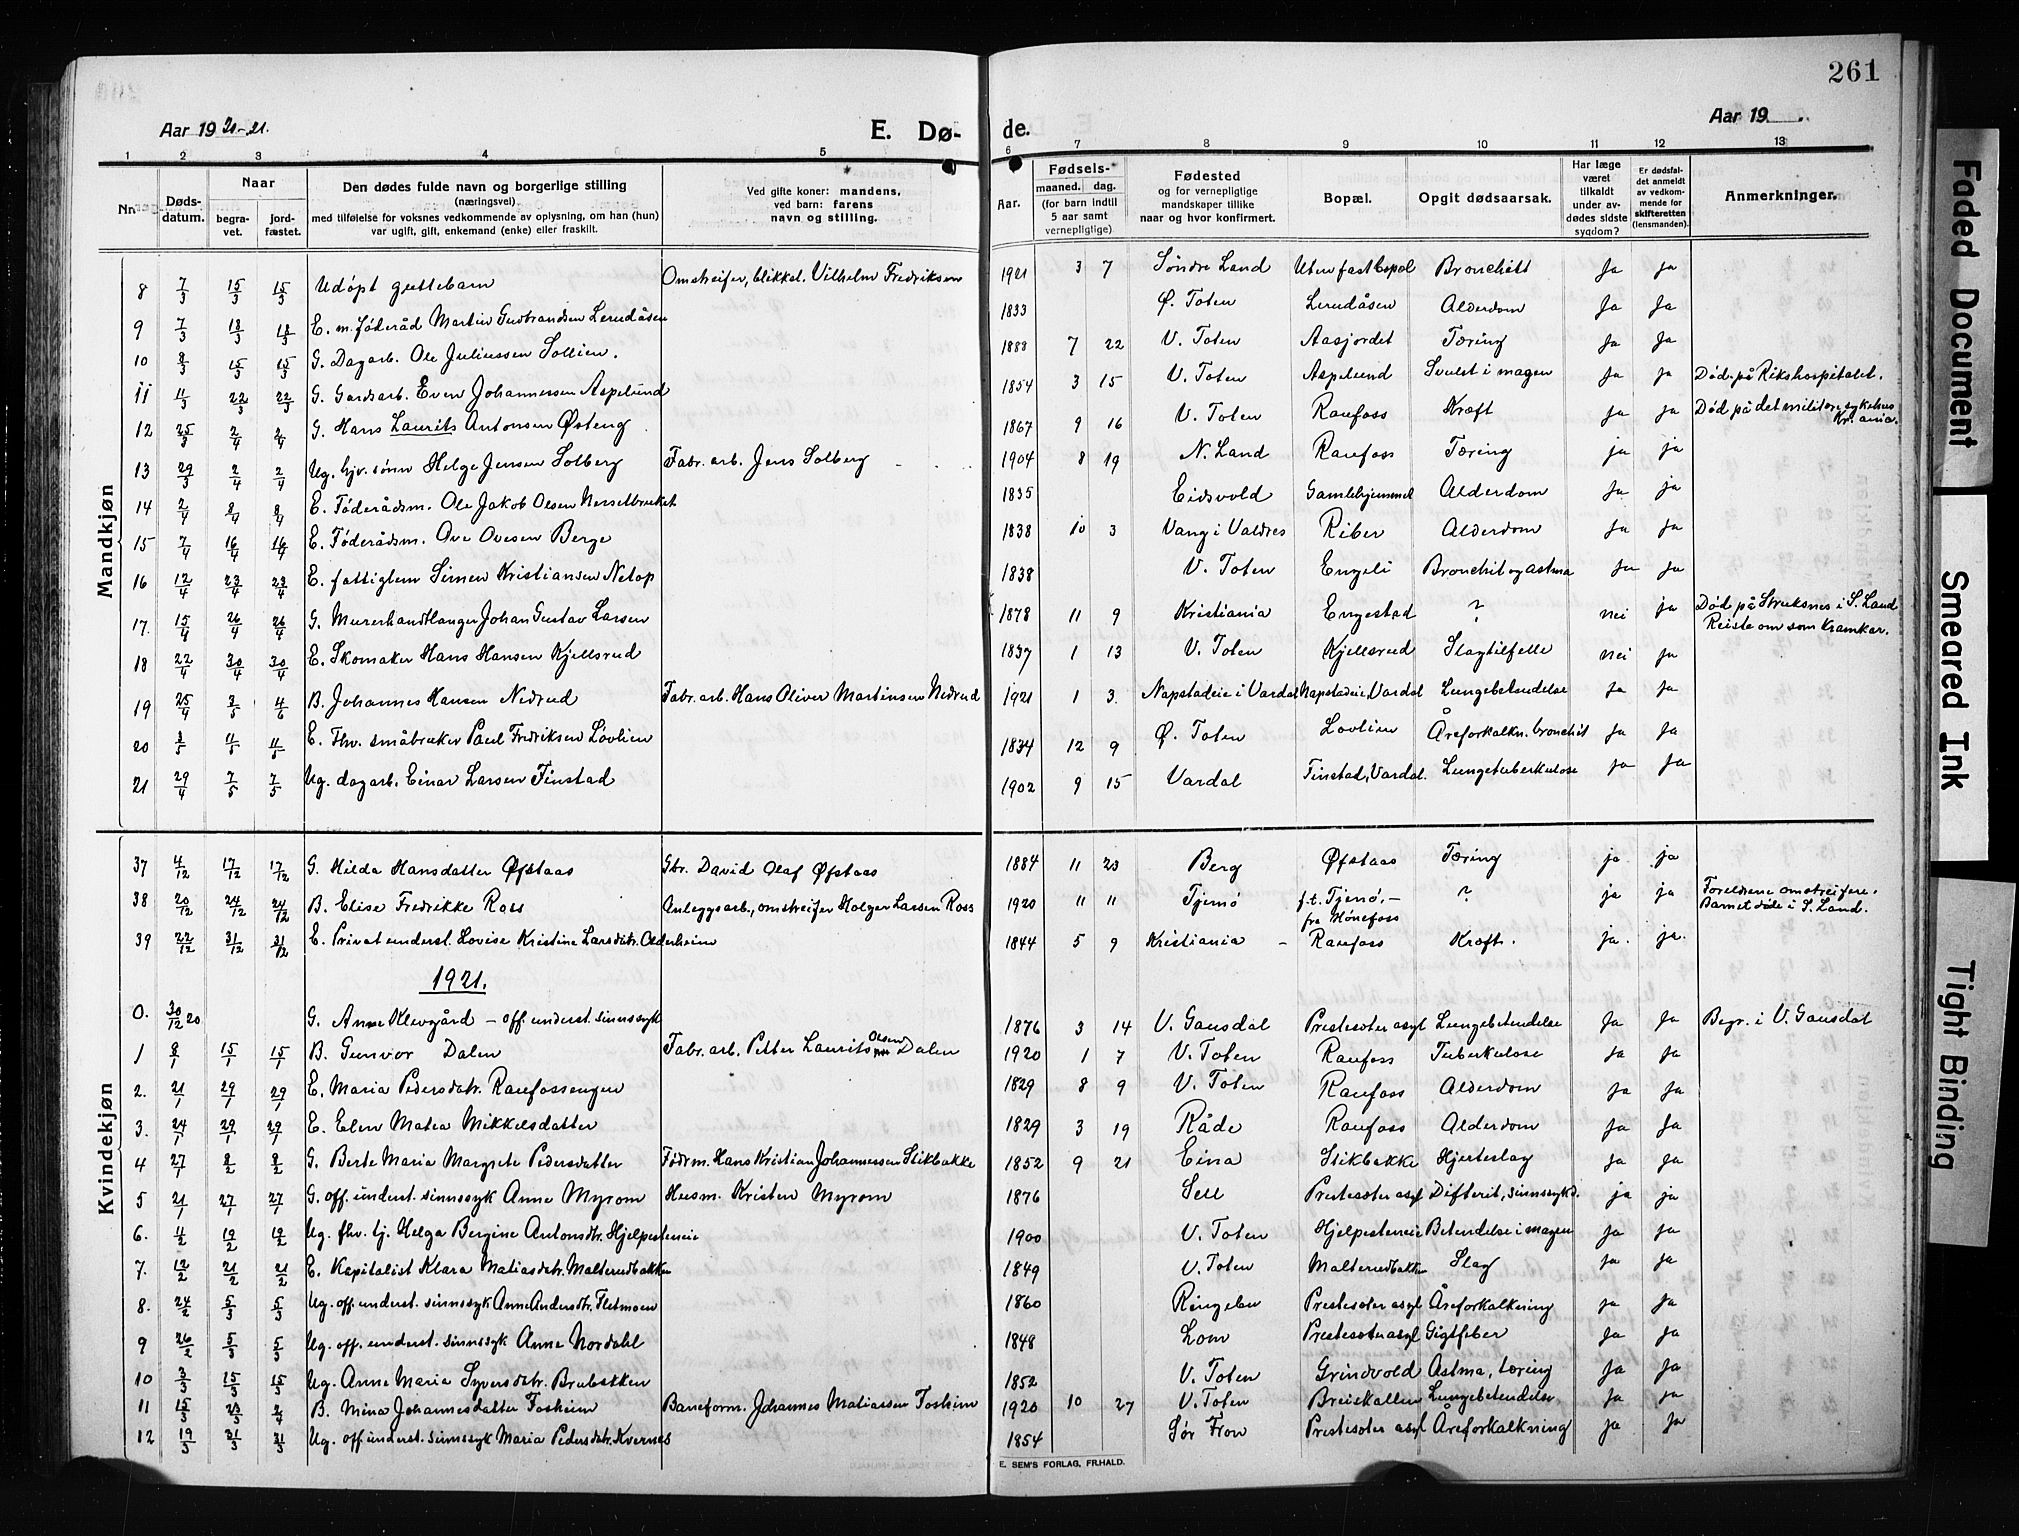 261
Aar 1920-21.
E. Dø-
de.
Aar 19
1 2 3 4 5
6 7 8 9 10 11 12 13
Nr. Døds-datum. Naar begra-vet. jord-fæstet. Den dødes fulde navn og borgerlige stilling (næringsvei) med tilføielse for voksnes vedkommende av oplysning, om han (hun) var ugift, gift, enkemand (enke) eller fraskilt. Ved gifte koner: mandens, ved barn: farens navn og stilling.
Aar. Fødsels- maaned. dag. (for barn indtil 5 aar samt vernepligtige) Fødested og for vernepligtige mandskaper tillike naar og hvor konfirmert. Bopæl. Opgit dødsaarsak. Har læge været tilkaldt under av-dødes sidste sygdom? Er dødsfal-det anmeldt av vedkom-mende for skifteretten (lensmanden). Anmerkninger.
Mandkjøn
8 7/3 15/3 15/3 Udøpt guttebarn Omstreifer, blikkel. Vilhelm Fredriksen 1921 3 7 Søndre Land Uten fast bopæl Bronchitt Ja ja
9 7/3 18/3 18/3 E. m. føderåd Martin Gudbrandsen Lerudåsen 1833 Ø. Toten Lerudåsen Alderdom Ja Ja
10 8/3 15/3 15/3 G. Dagarb. Ole Juliussen Sollien. 1888 7 22 V. Toten Aasjordet Tæring Ja Ja
11 11/3 22/3 22/3 G. Gardsarb. Even Johannessen Aspelund 1854 3 15 V. Toten Aspelund Svulst i magen Ja Ja Død på Rikshospitalet.
12 25/3 2/4 2/4 G. Hans Laurits Antonsen Østeng 1867 9 16 V. Toten Raufoss Kræft ja Ja Død på det militære sykehus Kr.ania.
13 29/3 2/4 2/4 Ug. hjv. sønn Helge Jensen Solberg Fabr. arb. Jens Solberg 1904 8 19 N. Land Raufoss Tæring ja ja
14 2/4 8/4 8/4 E. Føderådsm. Ole Jakob Olsen Nersetbruket 1835 Eidsvold Gamlehjemmet Alderdom Ja ja
15 7/4 16/4 16/4 E. Føderådsm. Ove Ovesen Berge 1838 10 3 Vang i Valdres Riber Alderdom Ja Ja
16 12/4 23/4 23/4 E. fattiglem Simen Kristiansen Netop 1838 V. Toten Engeli Bronchit og astma Ja Ja
17. 15/4 26/4 26/4 G. Murerhandtlanger Johan Gustav Larsen 1878 11 9 Kristiania Engestad ? nei ja Død på Struksnes i S. Land Reiste om som kramkar.
18 22/4 30/4 30/4 E. Skomaker Hans Hansen Kjellsrud 1837 1 13 V. Toten Kjellsrud Slagtilfelle nei ja
19 25/4 3/5 4/6 B. Johannes Hansen Nedrud Fabr. arb. Hans Oliver Martinsen Nedrud 1921 1 3. Napstadeie i Vardal Napstadeie, Vardal Lungebetendelse Ja Ja
20 3/5 11/5 11/5 E. Fhv. småbruker Paul Fredriksen Løvlien 1834 12 9 Ø. Toten Lovlien Åreforkalkn. bronchit Ja Ja
21 29/4 7/5 7/5 Ug. dagarb. Einar Larsen Finstad 1902 9 15 Vardal Finstad, Vardal. Lungetuberkulose Ja Ja
Kvindekjøn
37 4/12 17/12 17/12 G. Hilda Hansdatter Øfstaas Gbr. David Olaf Øfstaas 1884 11 23 Berg Øfstaas Tæring ja ja
38 20/12 24/12 24/12 B. Elise Fredrikke Ross Anleggsarb., omstreifer Holger Larsen Ross 1920 11 11 Tjømø f.t. Tjømø, - fra Hønefoss ? ja ja Foreldrene omstreifere. Barnet døde i S. Land.
39 22/12 31/12 31/12 E. Privat underst. Lovise Kristine Larsdtr. Olderheim 1844 5 9 Kristiania - Raufoss Kræft. ja. ja.
1921.
0. 30/12 20 G. Anne Klevgård - off. underst. sinnssyk 1876 3 14 V. Gausdal Prestesæter asyl Lungebetendelse Ja Ja Begr. i V. Gausdal
1 8/1 15/1 15/1 B. Gunvor Dalen Fabr. arb. Petter Laurits Olsen Dalen 1920 1 7 V. Toten Raufoss Tuberkulose Ja Ja
2. 21/1 29/1 29/1 E. Maria Pedersdatr. Raufossengen 1829 8 9 V. Toten Raufoss Alderdom Ja Ja
3. 24/1 29/1 29/1 E. Elen Matea Mikkelsdatter 1829 3 19 Råde Raufoss Alderdom Ja Ja
4 27/1 8/2 8/2 G. Berte Maria Margrete Pedersdatter Fødrm. Hans Kristian Johannessen Stikbakke 1852 9 21 Eina Stikbakke Hjerteslag Ja Ja
5 21/1 27/1 27/1 G. off. underst. sinnssyk Anne Myrom Husm. Kristen Myrom 1876 Sell Prestesæter asyl Difterit, sinnssykd. ja ja
6. 4/2 19/2 19/2 Ug. fhv. tj. Helga Bergine Antonsdtr. Hjelpesteneie 1900 V. Toten Hjelpesteneie Betendelse i magen Ja Ja
7. 12/2 21/2 21/2 E. Kapitalist Klara Matiasdatr. Malterudbakken 1849 V. Toten Malterudbakken Slag Ja Ja
8. 24/2 5/3 5/3 Ug. off. underst. sinnssyk Anne Andersdtr. Fletmoen 1860 Ringebu Prestesæter asyl Åreforkalkning Ja Ja
9 26/2 5/3 5/3 Ug. off. underst. sinnssyk Anne Nordahl 1848 Lom Prestesæter asyl Gigtfeber Ja Ja
10 3/3 15/3 15/3 Ug. Anne Maria Syversdatr. Brubakken 1852 V. Toten Grindvold Astma, tæring Ja Ja
11 15/3 23/3 2/4 B. Mina Johannesdatter Fosheim Baneform. Johannes Matiassen Fosheim 1920 10 27 V. Toten Breiskallen Lungebetendelse Ja Ja
12 19/3 31/3 31/3 Ug. off underst. sinnssyk Maria Pedersdatr. Kvernes 1854 Sør Fron Prestesæter asyl Åreforkalkning Ja Ja
E. SEM'S FORLAG, FR.HALD.
Faded Document
Smeared Ink
Tight Binding